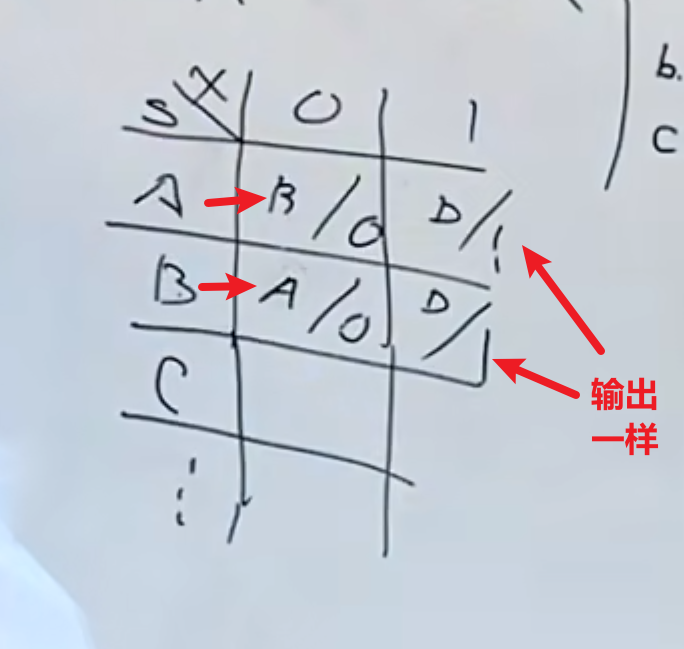 S X 0 1
A B/0 D/1
B A/0 D/1
C
⋮
b.
C
输出
一样